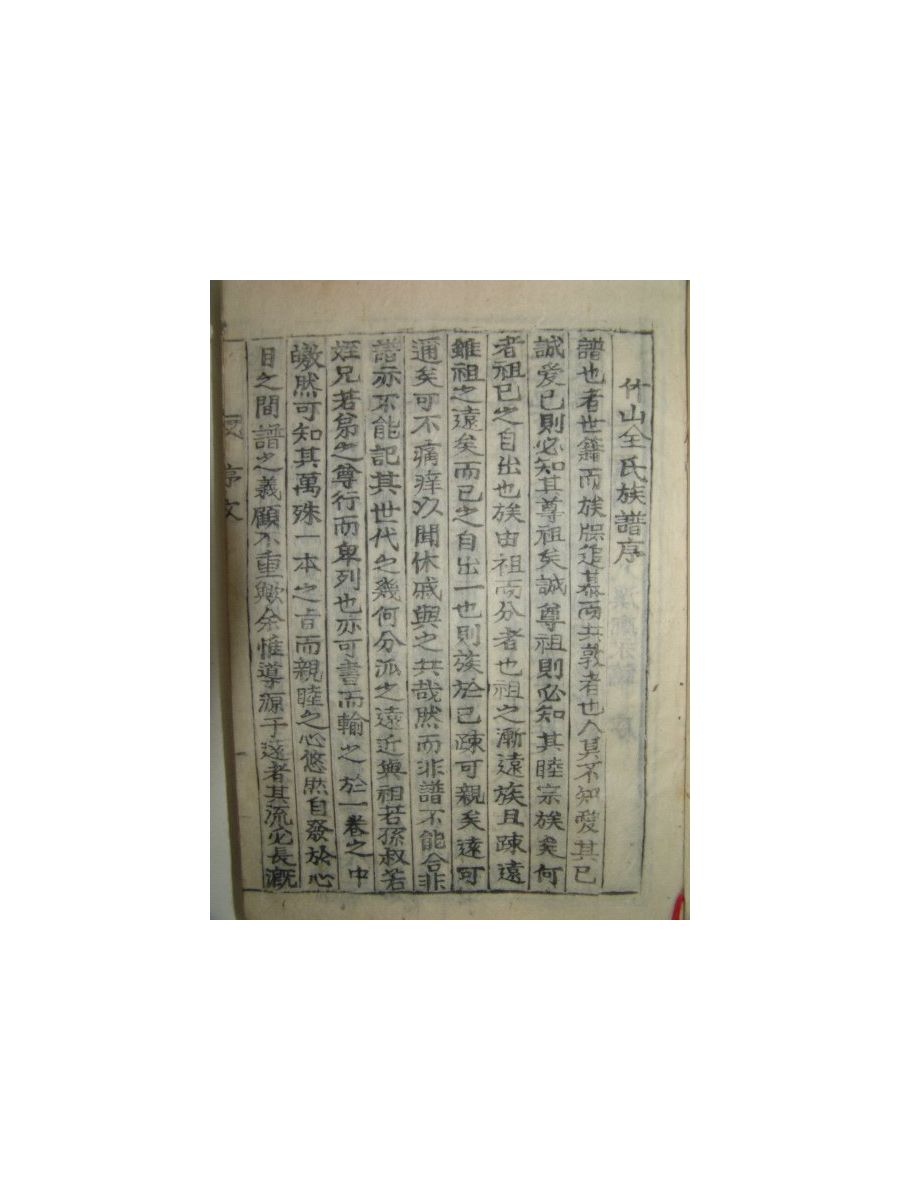 竹山全氏族譜序
譜也者世籍而族牒追慕而共敦者也人莫不知愛其己
誠愛己則必知其尊祖矣誠尊祖則必知其睦宗族矣何
者祖己之自出也族由祖而分者也祖之漸遠族且疎遠
雖祖之遠矣而己之自出一也則族於己疎可親矣遠可
邇矣可不痛痒以聞休戚與之共哉然而非譜不能合非
譜亦不能記其世代之幾何分派之遠近與祖若孫叔若
姪兄若弟之尊行而卑列也亦可書而輸之於一卷之中
皦然可知其萬殊一本之旨而親睦之心悠然自發於心
目之間譜之義顧不重歟余惟導源于遠者其流必長漑
序文